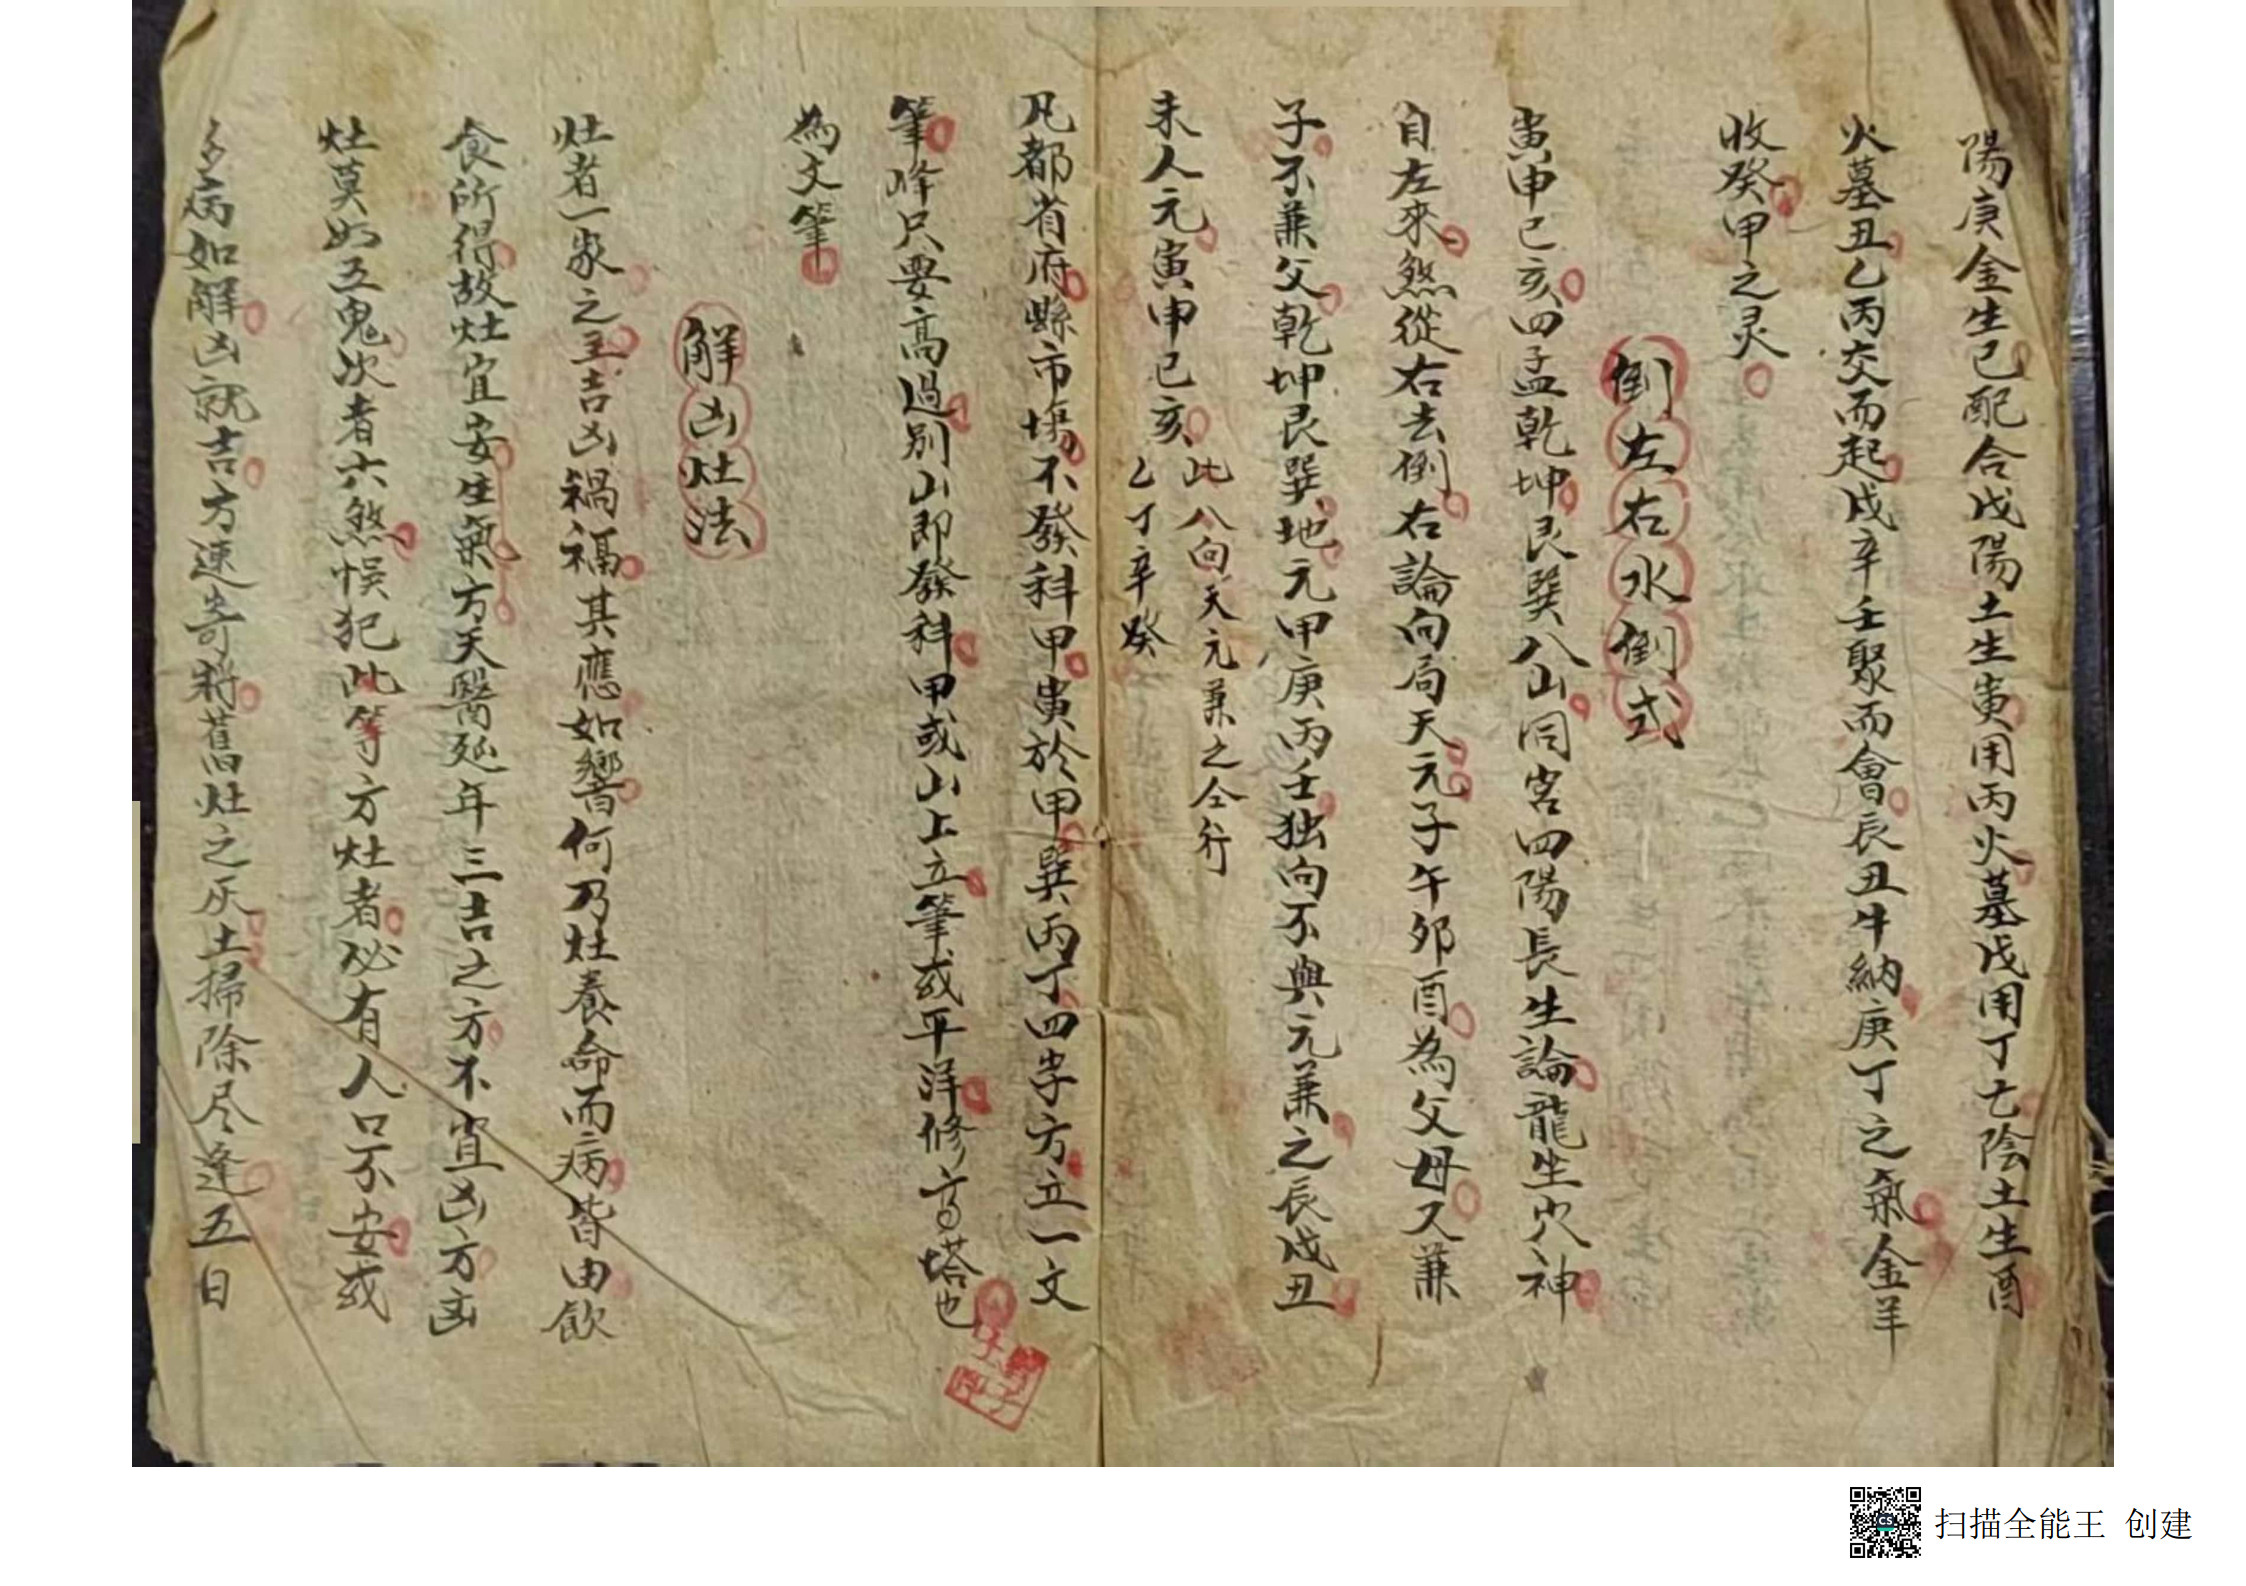 陽庚金生巳配合戊陽土生寅用丙火墓戌用丁七陰土生酉
火墓丑乙丙交而起戌辛壬聚而會辰丑牛納庚丁之氣金羊
收癸甲之灵
倒左右水倒式
寅申巳亥四孟乾坤艮巽八山同宮四陽長生論龍坐穴神
自左來煞從右去倒右論向局天元子午卯酉為父母又兼
子不兼父乾坤艮巽地元甲庚丙壬独向不與元兼之辰戌丑
未人元寅申巳亥
此八向天元兼之仝行
乙丁辛癸
凡都省府縣市塲不發科甲寅於甲巽丙丁四字方立一文
筆峰只要高過別山即發科甲或山上立筆或平洋修高塔也
為文筆
解凶灶法
灶者一家之主吉凶禍福其應如響何乃灶養命而病皆由飲
食所得故灶宜安生氣方天醫延年三吉之方不宜凶方凶
灶莫如五鬼次者六煞悞犯此等方灶者必有人口不安或
病如解凶就吉方速寄將舊灶之灰土掃除尽逢五日
扫描全能王 创建